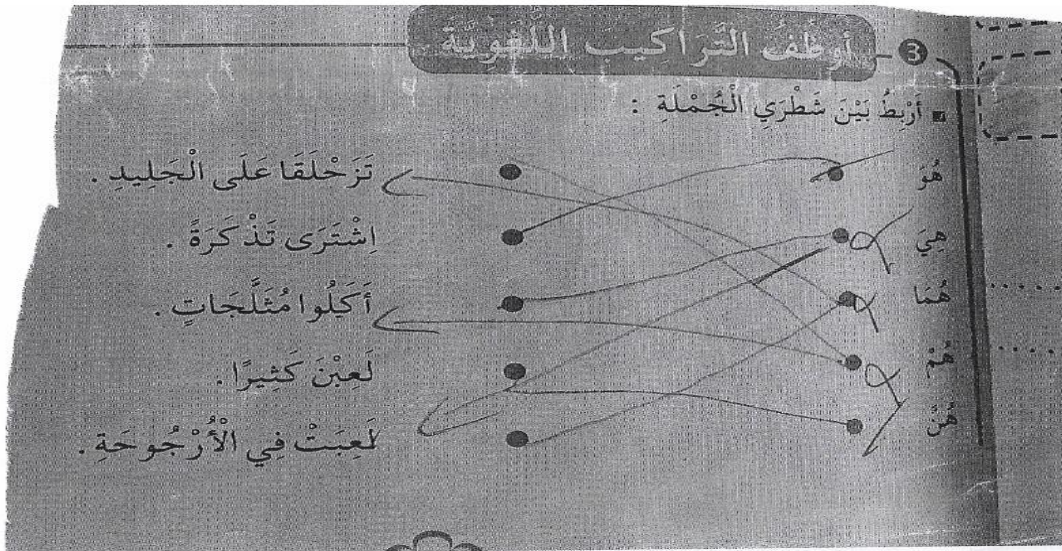 3 أوظف التراكيب اللغوية
أَرْبِطُ بَيْنَ شَطْرَيِ الْجُمْلَةِ :
هُوَ تَزَحْلَقَا عَلَى الْجَلِيدِ .
هِيَ اِشْتَرَى تَذْكَرَةً .
هُمَا أَكَلُوا مُثَلَّجَاتٍ .
هُمْ لَعِبْنَ كَثِيرًا .
هُنَّ لَعِبَتْ فِي الْأُرْجُوحَةِ .